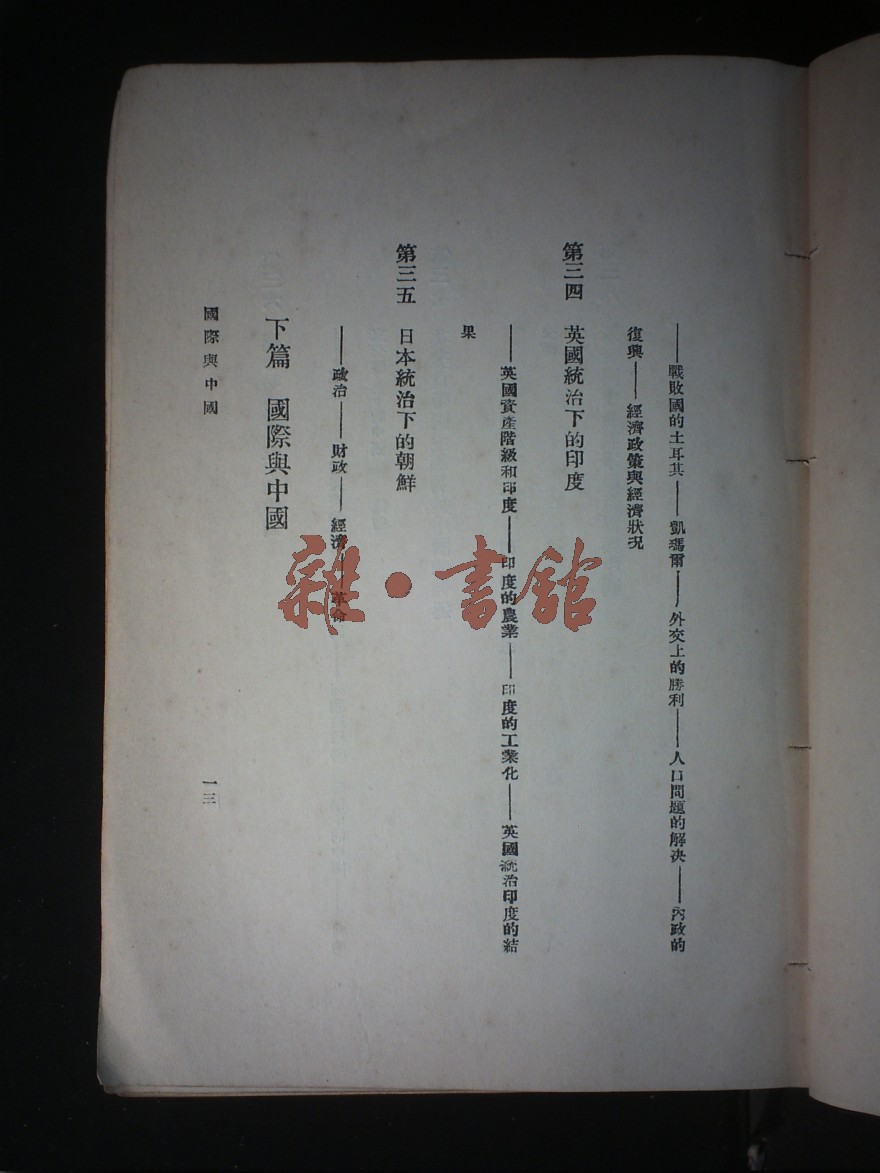 ——戰敗國的土耳其——凱瑪爾——外交上的勝利——人口問題的解决——內政的
復興——經濟政策與經濟狀況
第三四 英國統治下的印度
——英國資產階級和印度——印度的農業——印度的工業化——英國統治印度的結
果
第三五 日本統治下的朝鮮
——政治——財政——經濟——革命
下篇 國際與中國
國際與中國
一三
雜·書館